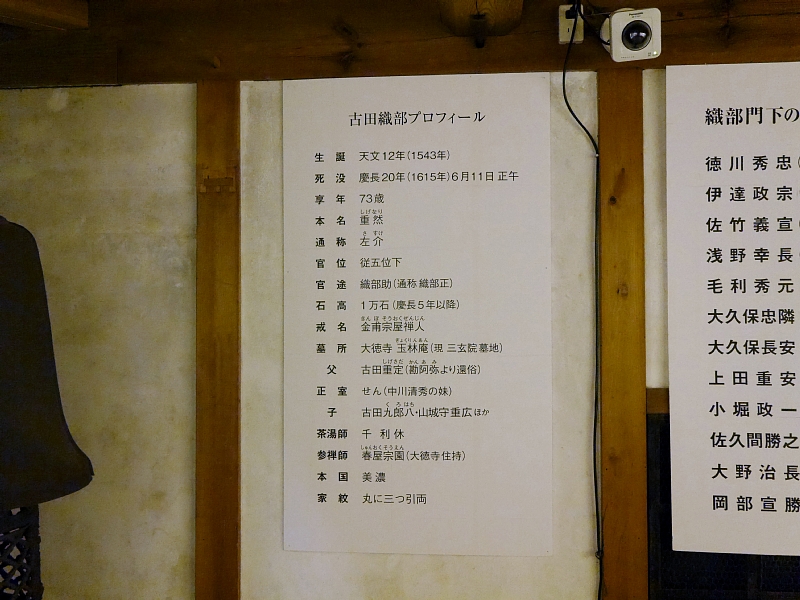 古田織部プロフィール
生誕 天文12年(1543年)
死没 慶長20年(1615年)6月11日 正午
享年 73歳
しげなり
本名 重然
さ すけ
通称 左介
官位 従五位下
官途 織部助(通称 織部正)
石高 1万石(慶長5年以降)
きん ぽ そうおくぜんじん
戒名 金甫宗屋禅人
ぎょくりんあん
墓所 大徳寺 玉林庵(現 三玄院墓地)
しげさだ かん あ み
父 古田重定(勘阿弥より還俗)
正室 せん(中川清秀の妹)
く ろ はち
子 古田九郎八・山城守重広 ほか
茶湯師 千利休
しゅんおくそうえん
参禅師 春屋宗園(大徳寺住持)
本国 美濃
家紋 丸に三つ引両
織部門下の
徳川秀忠(
伊達政宗
佐竹義宣(
浅野幸長(
毛利秀元
大久保忠隣
大久保長安
上田重安
小堀政一
佐久間勝之
大野治長
岡部宣勝